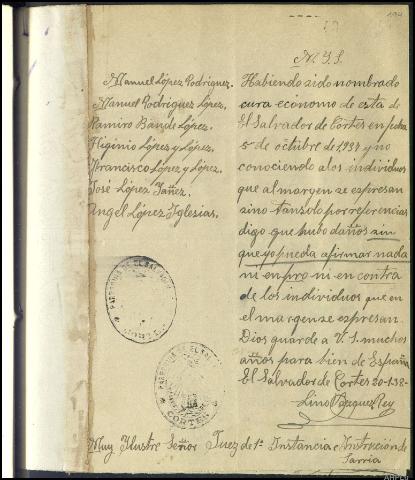 194
M. Y. S.
Manuel López Rodriguez.
Manuel Rodriguez López.
Ramiro Bande López.
Higinio López y López.
Francisco López y López.
José López Yañez.
Angel López Iglesias.
Habiendo sido nombrado
cura ecónomo de esta de
El Salvador de Cortes en fecha
5 de octubre de 1937 y no
conociendo a los individuos
que al margen se expresan
sino tan solo por referencias
digo que hubo daños sin
que yo pueda afirmar nada
ni en pro ni en contra
de los individuos que en
el margen se expresan.
Dios guarde a V. S. muchos
años para bien de España
El Salvador de Cortes 20-1-38-
Lino Vazquez Rey
PARROQUIA DE EL SALVADOR
CORTES
Muy Ilustre Señor Juez de 1ª Instancia e Instrucción de
Sarria